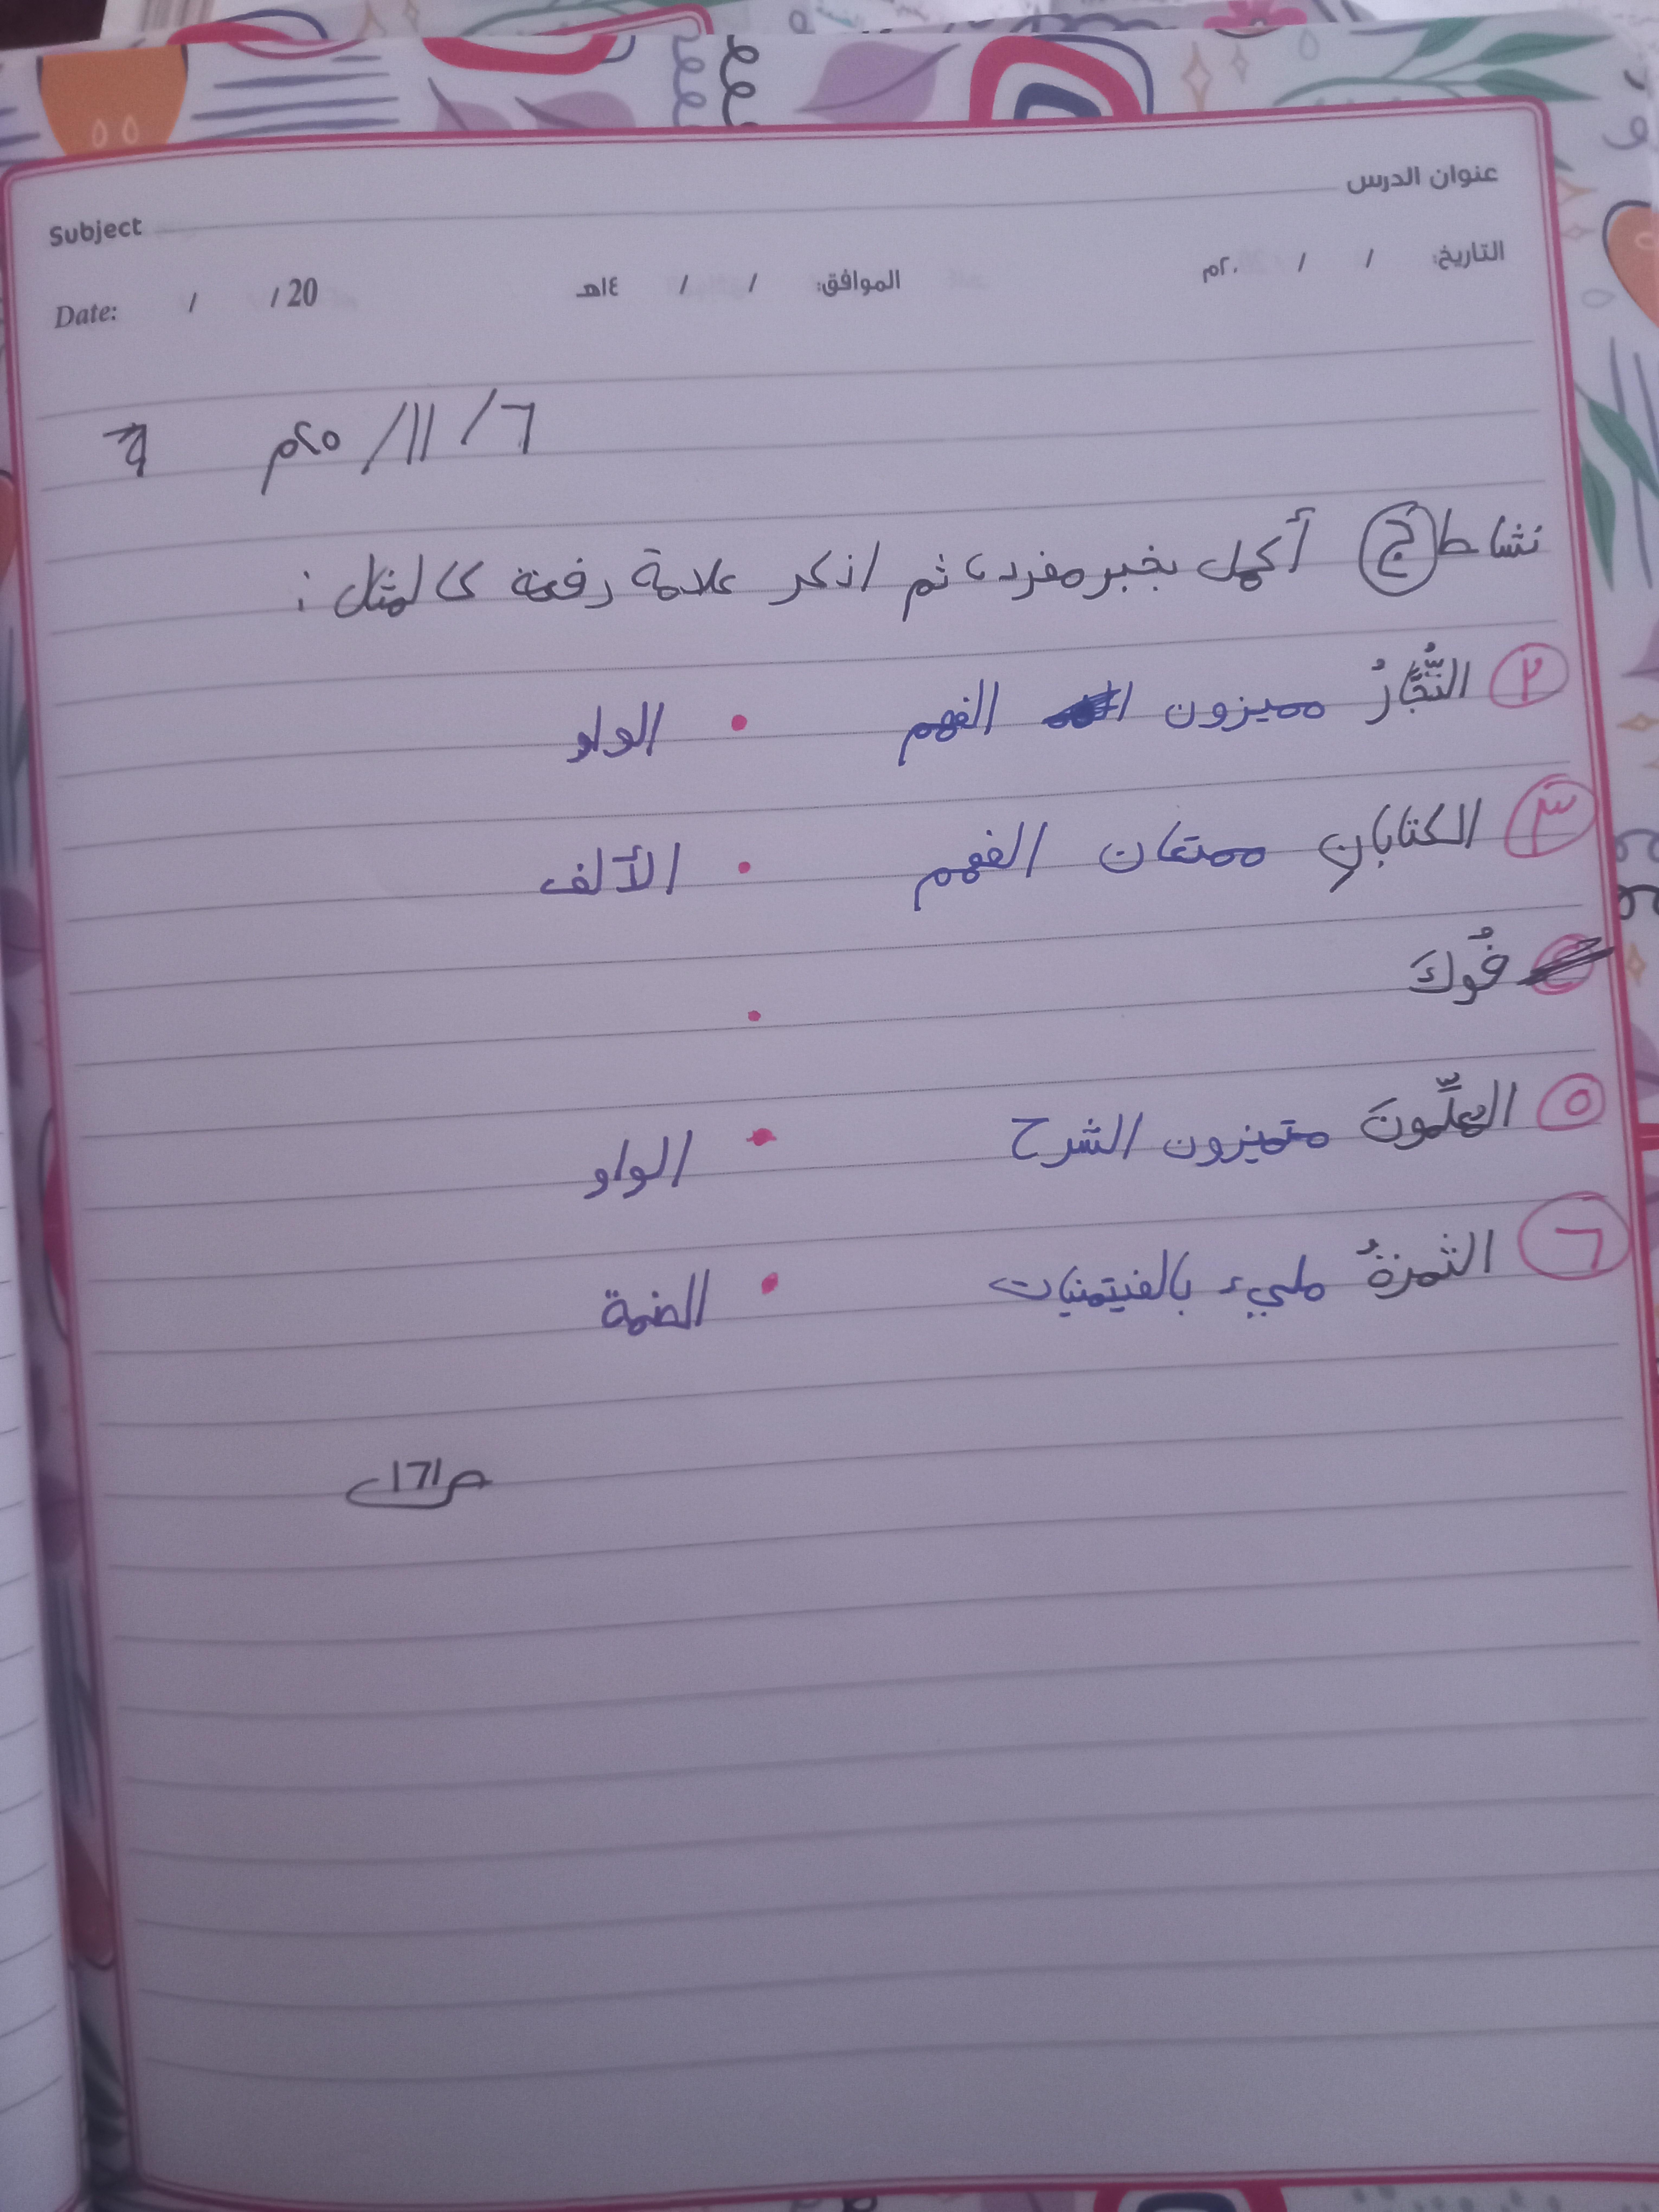 عنوان الدرس Subject
التاريخ: / / ٢٠م الموافق: / / ١٤هـ Date: / / 20
٦ / ١١ / ٢٠٢م
نشاط ج أكمل بخبر مفرد، ثم اذكر علامة رفعة كالمثال :
٢ النُّجَّارُ مميزون الفهم • الواو
٣ الكتابانِ ممتعان الفهم • الألف
فُوكَ •
٥ المعلِّمونَ متميزون الشرح • الواو
٦ الثمرةُ مليء بالفيتمنيات • الضمة
ص١٦١